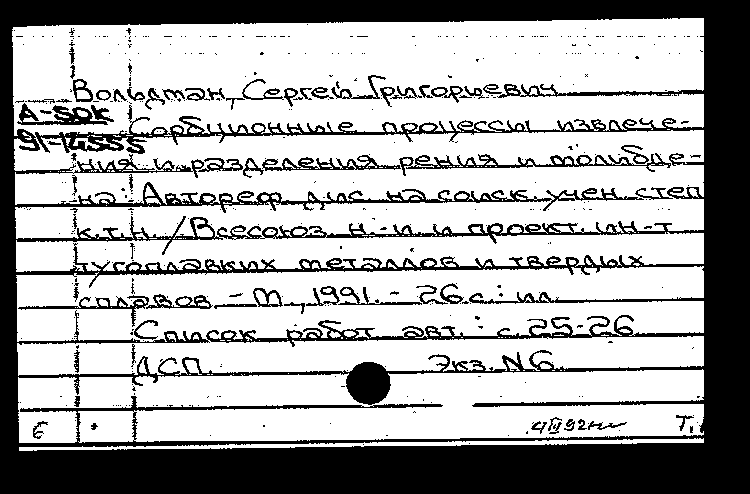 Вольдман, Сергей Григорьевич
А-SOK
91-14555
Сорбционные процессы извлече-
ния и разделения рения и молибде-
на: Автореф. дис. на соиск. учен. степ
к.т.н. / Всесоюз. н.-и. и проект. ин-т
тугоплавких металлов и твердых
сплавов. - М., 1991. - 26 с.: ил.
Список работ авт.: с. 25-26
ДСП. Экз. N6.
6
4 III 92 Т.